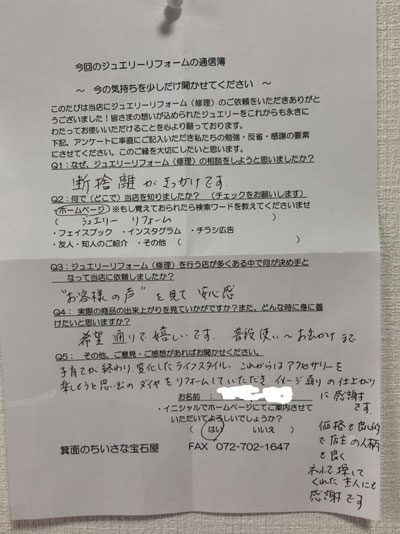 今回のジュエリーリフォームの通信簿
～ 今の気持ちを少しだけ聞かせてください ～
このたびは当店にジュエリーリフォーム（修理）のご依頼をいただきありがと
うございました！皆さまの想いが込められたジュエリーをこれからも永きに
わたってお使いいただけることを心より願っております。
下記、アンケートに率直にご記入いただき私たちの勉強・反省・感謝の要素
にさせてください。このご縁を大切にしたいと思います。
Q1：なぜ、ジュエリーリフォーム（修理）の相談をしようと思いましたか？
断捨離がきっかけです。
Q2：何で（どこで）当店を知りましたか？ （チェックをお願いします）
・ホームページ ※もし覚えておられたら検索ワードを教えてくださいませ
（ ジュエリー リフォーム ）
・フェイスブック ・インスタグラム ・チラシ広告
・友人・知人のご紹介 ・その他（ ）
Q3：ジュエリーリフォーム（修理）を行う店が多くある中で何が決め手と
なって当店に依頼しましたか？
"お客様の声"を見て 安心感
Q4： 実際の商品の出来上がりを見ていかがですか？また、どんな時に身に着
けたいと思いますか？
希望通りで嬉しいです。普段使い～お出かけまで
Q5： その他、ご意見・ご感想があればお聞かせください。
子育てが終わり変化したライフスタイル。これからはアクセサリーを
楽しもうと思い ダイヤをリフォームしていただき イメージ通りの仕上がり
に感謝
です。
お名前：
・イニシャルでホームページにてご案内させて
いただいてよろしいでしょうか？
（ はい いいえ ）
価格も良心的
で店主の人柄
も良く
探して
くれた主人にも
感謝です
箕面のちいさな宝石屋 FAX 072-702-1647